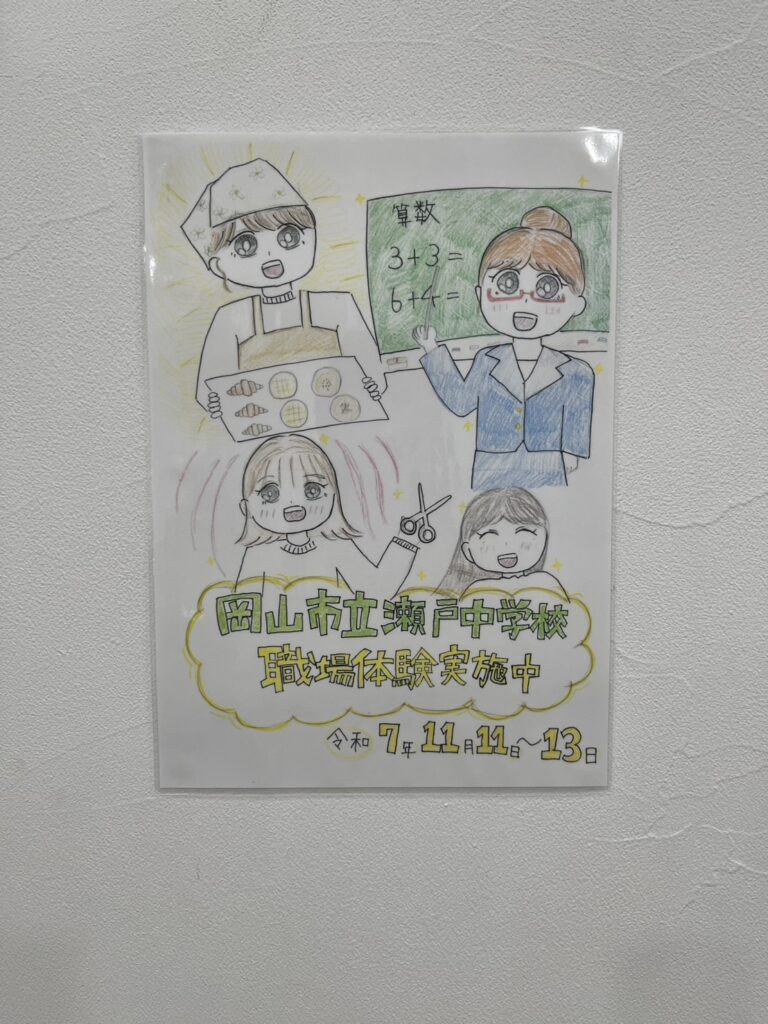 算数
3+3=
6+4=
岡山市立瀬戸中学校
職場体験実施中
令和7年11月11日〜13日